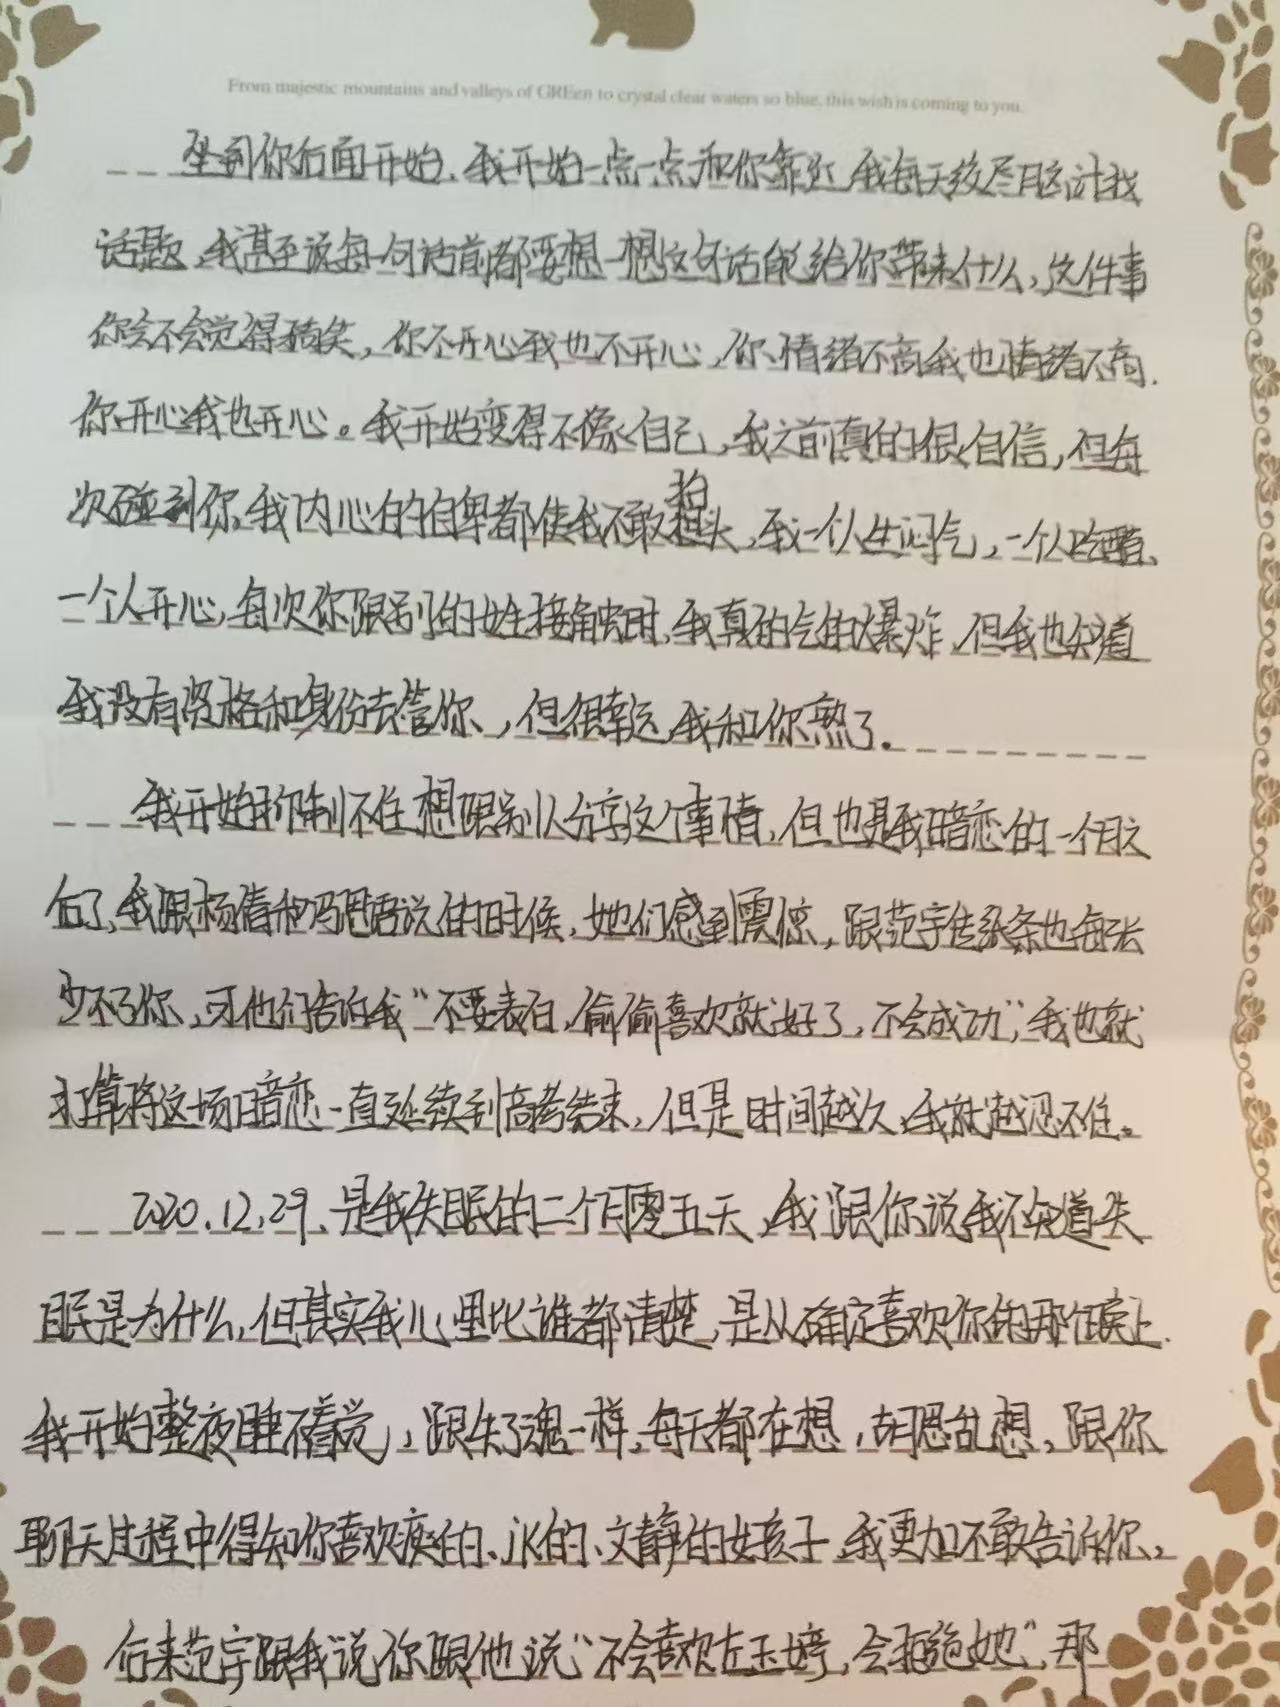 From majestic mountains and valleys of GREen to crystal clear waters so blue, this wish is coming to you.
坐到你后面开始,我开始一点一点和你靠近,我每天绞尽脑汁找
话题,我甚至说每一句话前都要想一想这句话能给你带来什么,这件事
你会不会觉得搞笑,你不开心我也不开心,你情绪不高我也情绪不高.
你开心我也开心。我开始变得不像自己,我之前真的很自信,但每
次碰到你,我内心的自卑都使我不敢抬头,我一个人生闷气,一个人吃醋、
一个人开心,每次你跟别的女生接触时,我真的气的爆炸,但我也知道
我没有资格和身份去管你,但很幸运,我和你熟了.
我开始抑制不住想跟别人分享这个事情,但也是我暗恋的一个月之
后了,我跟杨倩和冯思语说的时候,她们感到震惊,跟范宇传纸条也每张
少不了你,可他们告诉我“不要表白,偷偷喜欢就好了,不会成功”,我也就
打算将这场暗恋一直延续到高考结束,但是时间越久,我就越忍不住。
2020.12.29、是我失眠的二个月零五天,我跟你说我不知道失
眠是为什么,但其实我心里比谁都清楚,是从确定喜欢你的那个晚上.
我开始整夜睡不着觉,跟失了魂一样,每天都在想,胡思乱想,跟你
聊天过程中得知你喜欢瘦的、jk的、文静的女孩子,我更加不敢告诉你,
后来范宇跟我说你跟他说“不会喜欢左玉婷,会拒绝她”,那